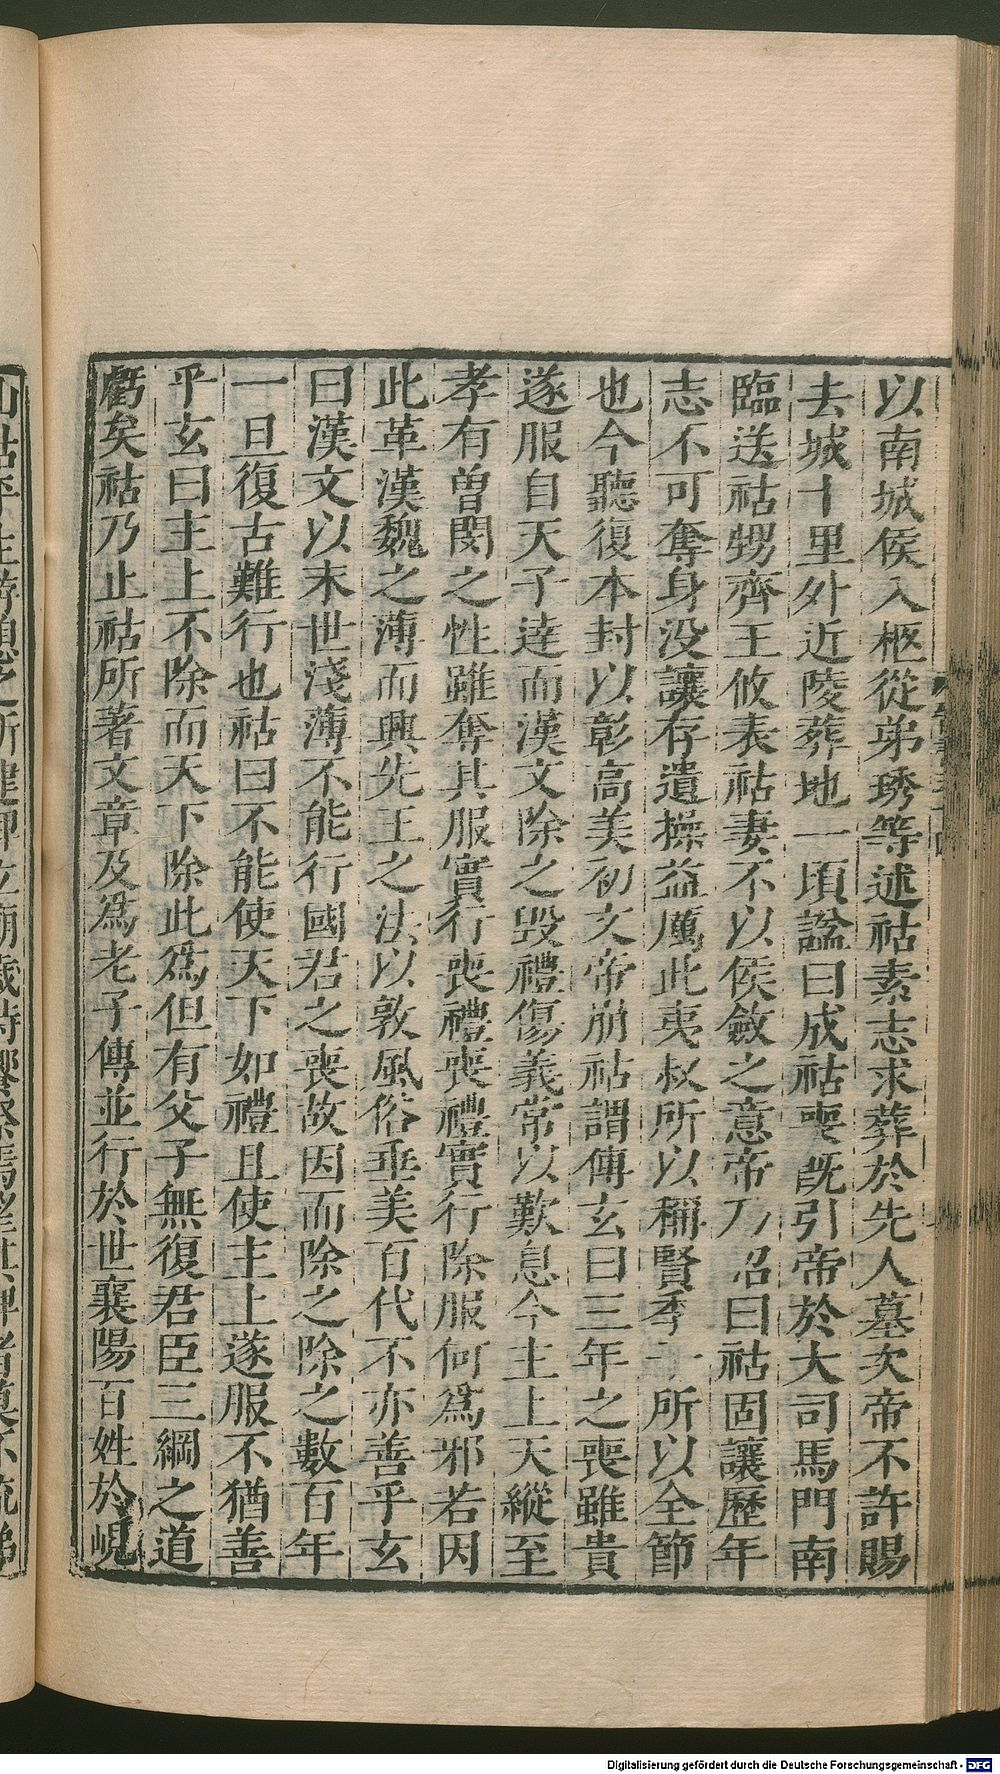 以南城侯入柩從弟琇等述祜素志求葬於先人墓次帝不許賜
去城十里外近陵葬地一頃諡曰成祜喪旣引帝於大司馬門南
臨送祜甥齊王攸表祜妻不以侯斂之意帝乃詔曰祜固讓歷年
志不可奪身没讓存遺操益厲此夷叔所以稱賢季子所以全節
也今聽復本封以彰高美初文帝崩祜謂傅玄曰三年之喪雖貴
遂服自天子達而漢文除之毀禮傷義常以歎息今主上天縱至
孝有曾閔之性雖奪其服實行喪禮喪禮實行除服何爲邪若因
此革漢魏之薄而興先王之法以敦風俗垂美百代不亦善乎玄
曰漢文以末世淺薄不能行國君之喪故因而除之除之數百年
一旦復古難行也祜曰不能使天下如禮且使主上遂服不猶善
乎玄曰主上不除而天下除此爲但有父子無復君臣三綱之道
虧矣祜乃止祜所著文章及爲老子傳並行於世襄陽百姓於峴
Digitalisierung gefördert durch die Deutsche Forschungsgemeinschaft - DFG